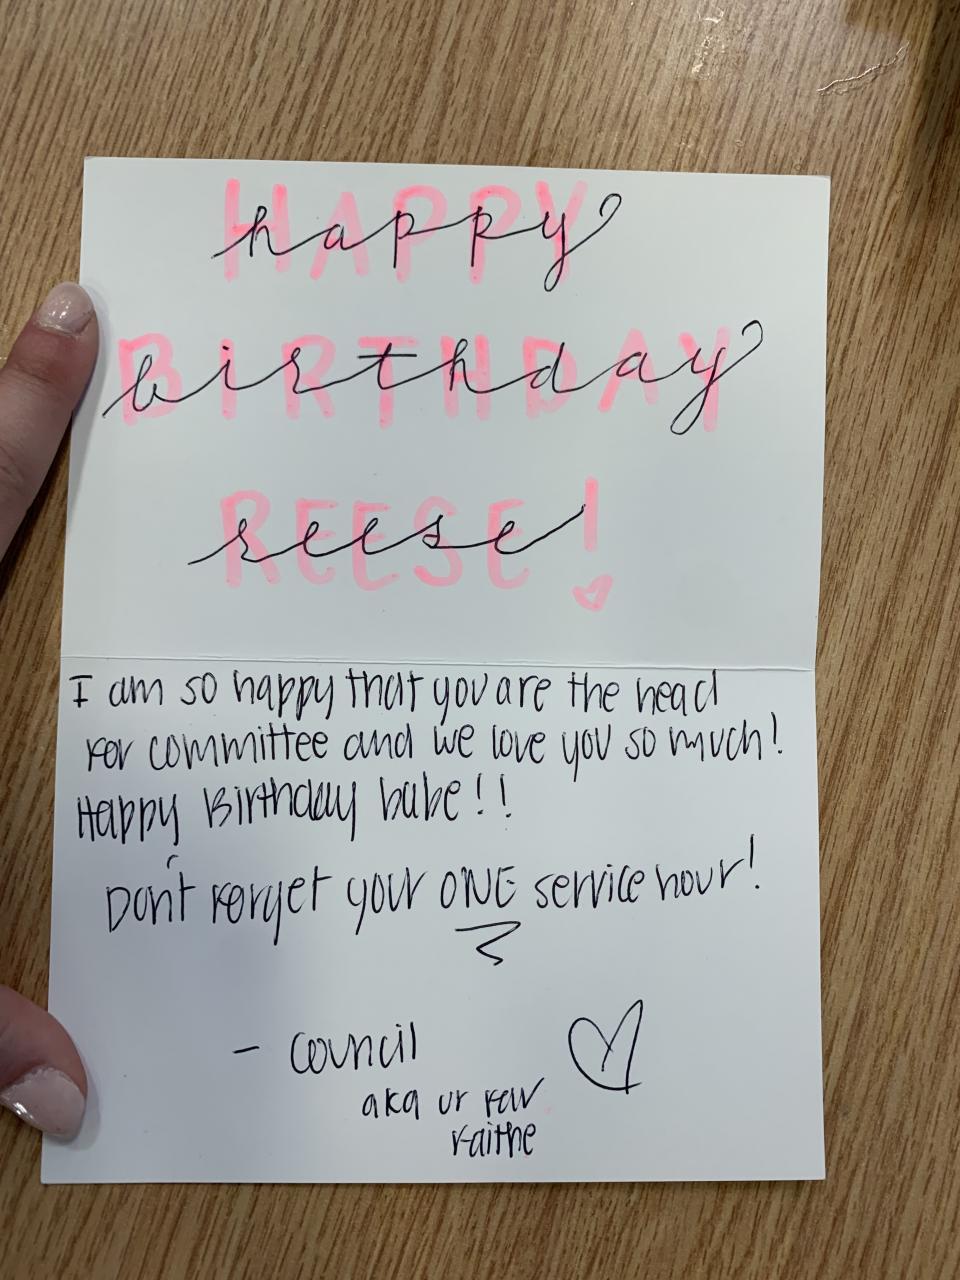 HAPPY
happy
BIRTHDAY
birthday
REESE!
reese
I am so happy that you are the head
for committee and we love you so much!
Happy Birthday babe!!
Don't forget your ONE service hour!
- Council
aka ur fav
Faithe